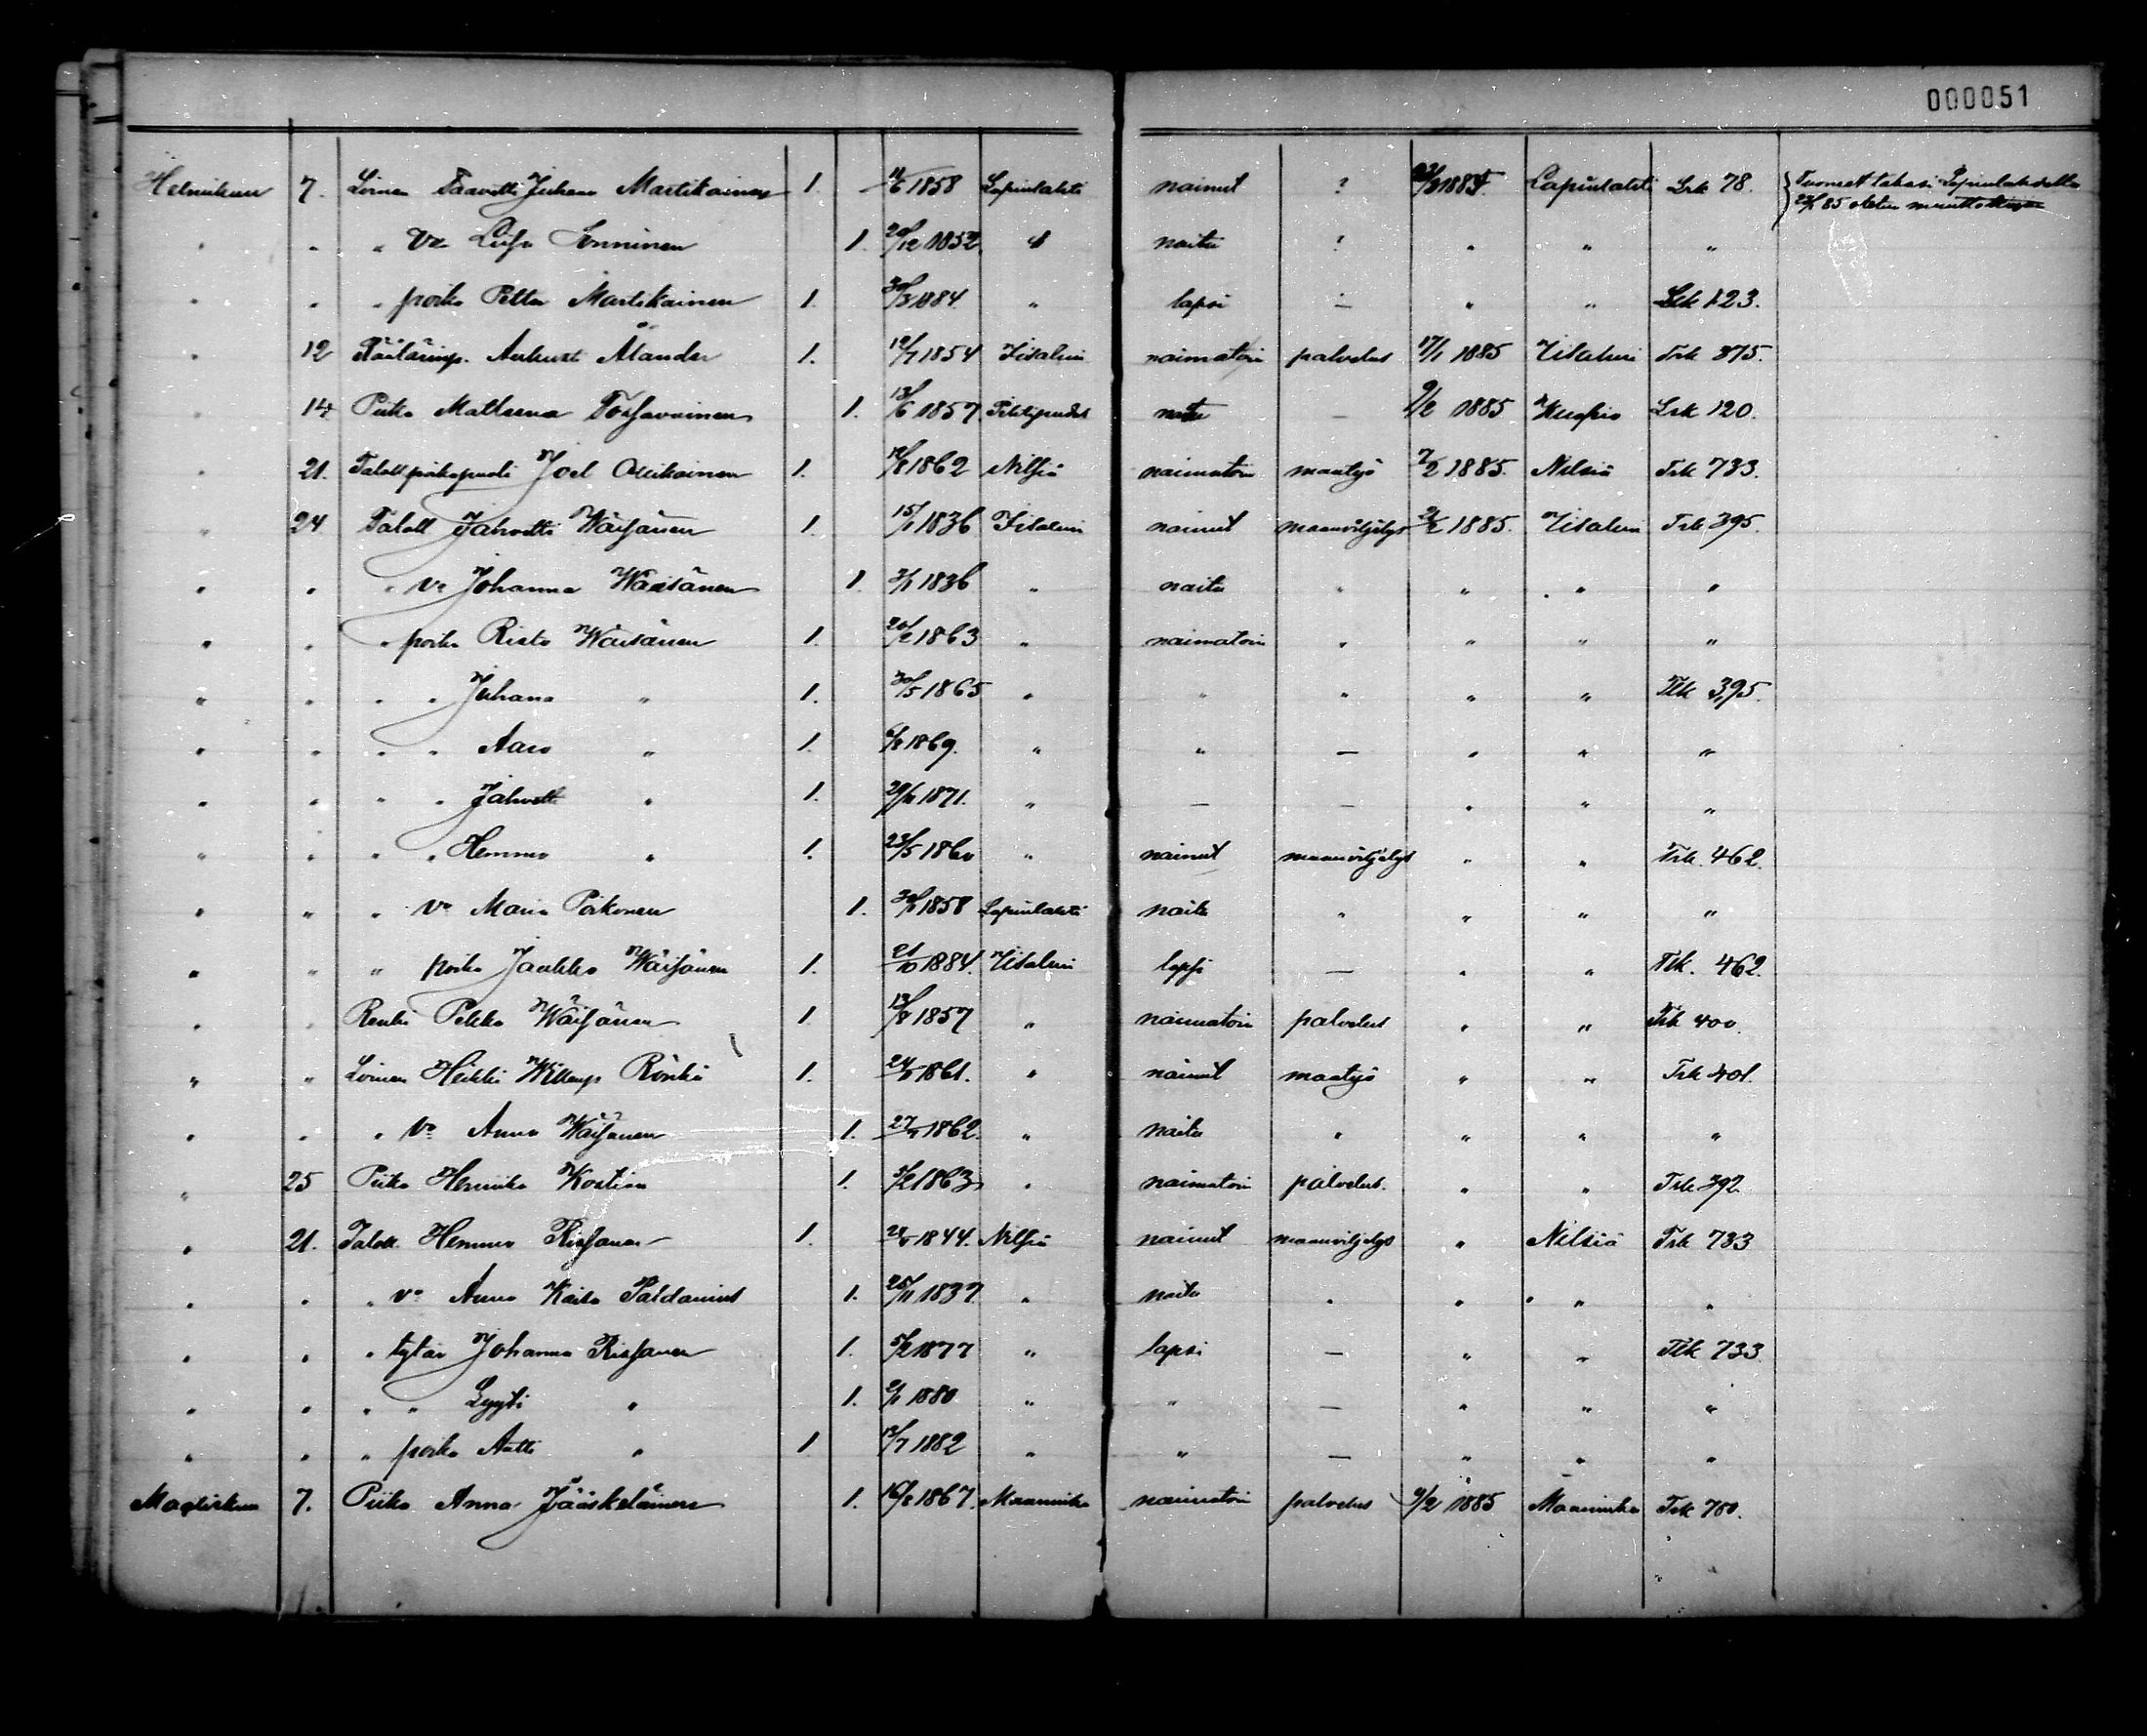 000051
Helmikuu 7. Loinen Taavetti Juhana Martikainen 1. 11/6 1858 Lapinlahti nainut ? 1884. Lapinlahti Lrk 78. Tuoneet takasi Lapinlahdella
" " " Vo Liisa Sonninen 1. 20/12 1852 " naitu ? " " "
" " " poika Petter Martikainen 1. 30/3 1884. " lapsi — " " Lrk 123.
" 12 Räätälinp. Aukusti Ålander 1. 19/7 1854 Iisalmi naimatoin palvelus 17/1 1885 Iisalmi Trk 375.
" 14 Piika Malleena Tossavainen 1. 13/6 1857 naitu — 9/2 1885 Kuopio Lrk 120.
" 21. Taloll poikapuoli Joel Ollikainen 1. 12/8 1862 Nilsiä naimatoin maatyö 7/2 1885. Nilsiä Trk 733.
" 24 Taloll Jahvetti Wäisänen 1. 15/1 1836 Iisalmi nainut maanviljelys 21/2 1885. Iisalmi Trk 395.
" " " Vo Johanna Wäisänen 1. 3/1 1836 " naitu " " " "
" " " poika Risto Wäisänen 1. 20/2 1863 " naimatoin " " " "
" " " " Juhana " 1. 30/5 1865 " " " " " Trk 395.
" " " " Aaro " 1. 6/8 1869. " " — " " "
" " " " Jahvetti " 1. 29/11 1871. " — — " " "
" " " " Hemmo " 1. 23/5 1860 " nainut maanviljelys " " Trk. 462.
" " " Vo Maria Pöikonen 1. 30/1 1858 Lapinlahti naitu " " " "
" " " poika Jaakko Wäisänen 1. 21/10 1884. Iisalmi lapsi — " " Trk. 462
" " Renki Pekka Wäisänen 1 13/8 1857 " naimatoin palvelus " " Trk 400.
" " Loinen Heikki Rönkä 1. 1861. " nainut maatyö " " Trk 401.
" " " Vo Anna Wäisänen 1. 1862. " naitu " " " "
" 25 Piika Henriika Kostian 1. 5/2 1863 " naimatoin palvelus. " " Trk 392
" 21. Taloll. Hemmo Rissanen 1. 1844. Nilsiä nainut maanviljelys " Nilsiä Trk 733
" " " vo Anna Kaisa Paldanius 1. 25/11 1837 " naitu " " " "
" " " tytär Johanna Rissanen 1. 5/2 1877 " lapsi — " " Trk 733
" " " " Lyyti " 1. 2/1 1880 " " — " " "
" " " poika Antti " 1 12/7 1882 " " — " " "
Maaliskuu 7. Piika Anna Jääskeläinen 1. 16/8 1867. Maaninka naimatoin palvelus 9/2 1885 Maaninka Trk 750.